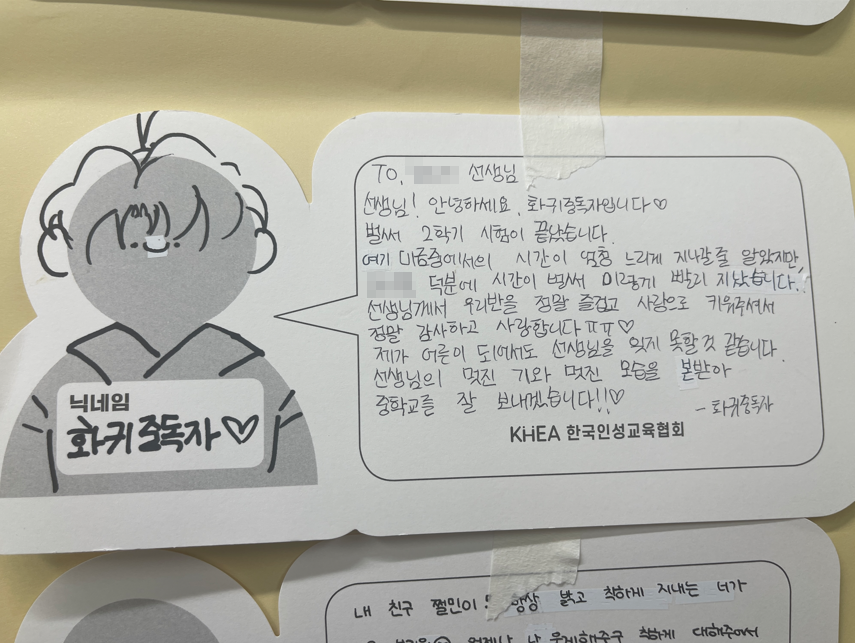 To. 선생님
선생님! 안녕하세요. 화귀중독자입니다♡
벌써 2학기 시험이 끝났습니다.
여기 미금중에서의 시간이 엄청 느리게 지나갈줄 알았지만,
덕분에 시간이 벌써 이렇게 빨리 지났습니다.
선생님께서 우리반을 정말 즐겁고 사랑으로 키워주셔서
정말 감사하고 사랑합니다ㅠㅠ♡
제가 어른이 되어서도 선생님을 잊지 못할것 같습니다.
선생님의 멋진 기와 멋진 모습을 본받아
중학교를 잘 보내겠습니다!!♡
- 화귀중독자
KHEA 한국인성교육협회
닉네임
화귀 중독자♡
내 친구 쩔민이 항상 밝고 착하게 지내는 너가
착하게 대해주어서